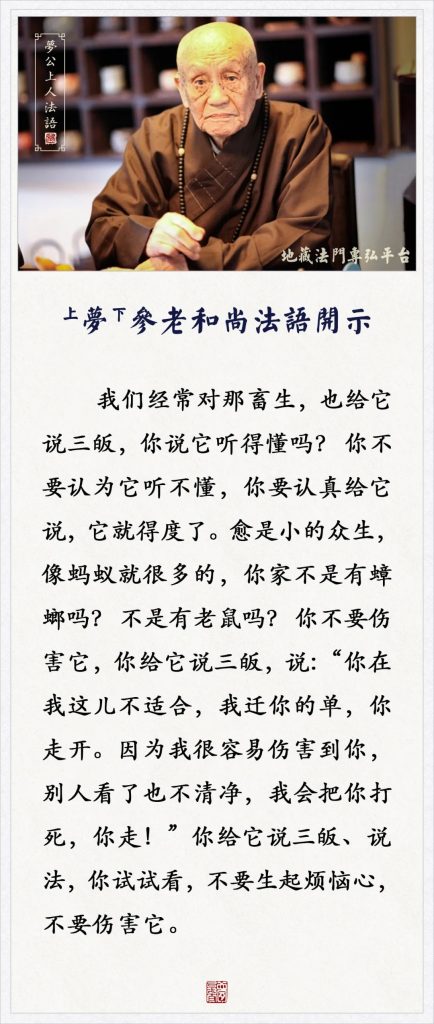 夢公上人法語
地藏法門專弘平台
上夢下參老和尚法語開示
我们经常对那畜生，也给它
说三皈，你说它听得懂吗？ 你不
要认为它听不懂，你要认真给它
说，它就得度了。愈是小的众生，
像蚂蚁就很多的，你家不是有蟑
螂吗？ 不是有老鼠吗？ 你不要伤
害它，你给它说三皈，说：“你在
我这儿不适合，我迁你的单，你
走开。因为我很容易伤害到你，
别人看了也不清净，我会把你打
死，你走！”你给它说三皈、说
法，你试试看，不要生起烦恼心，
不要伤害它。